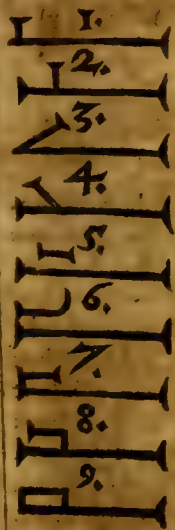 1.
2.
3.
4.
5.
6.
7.
8.
9.